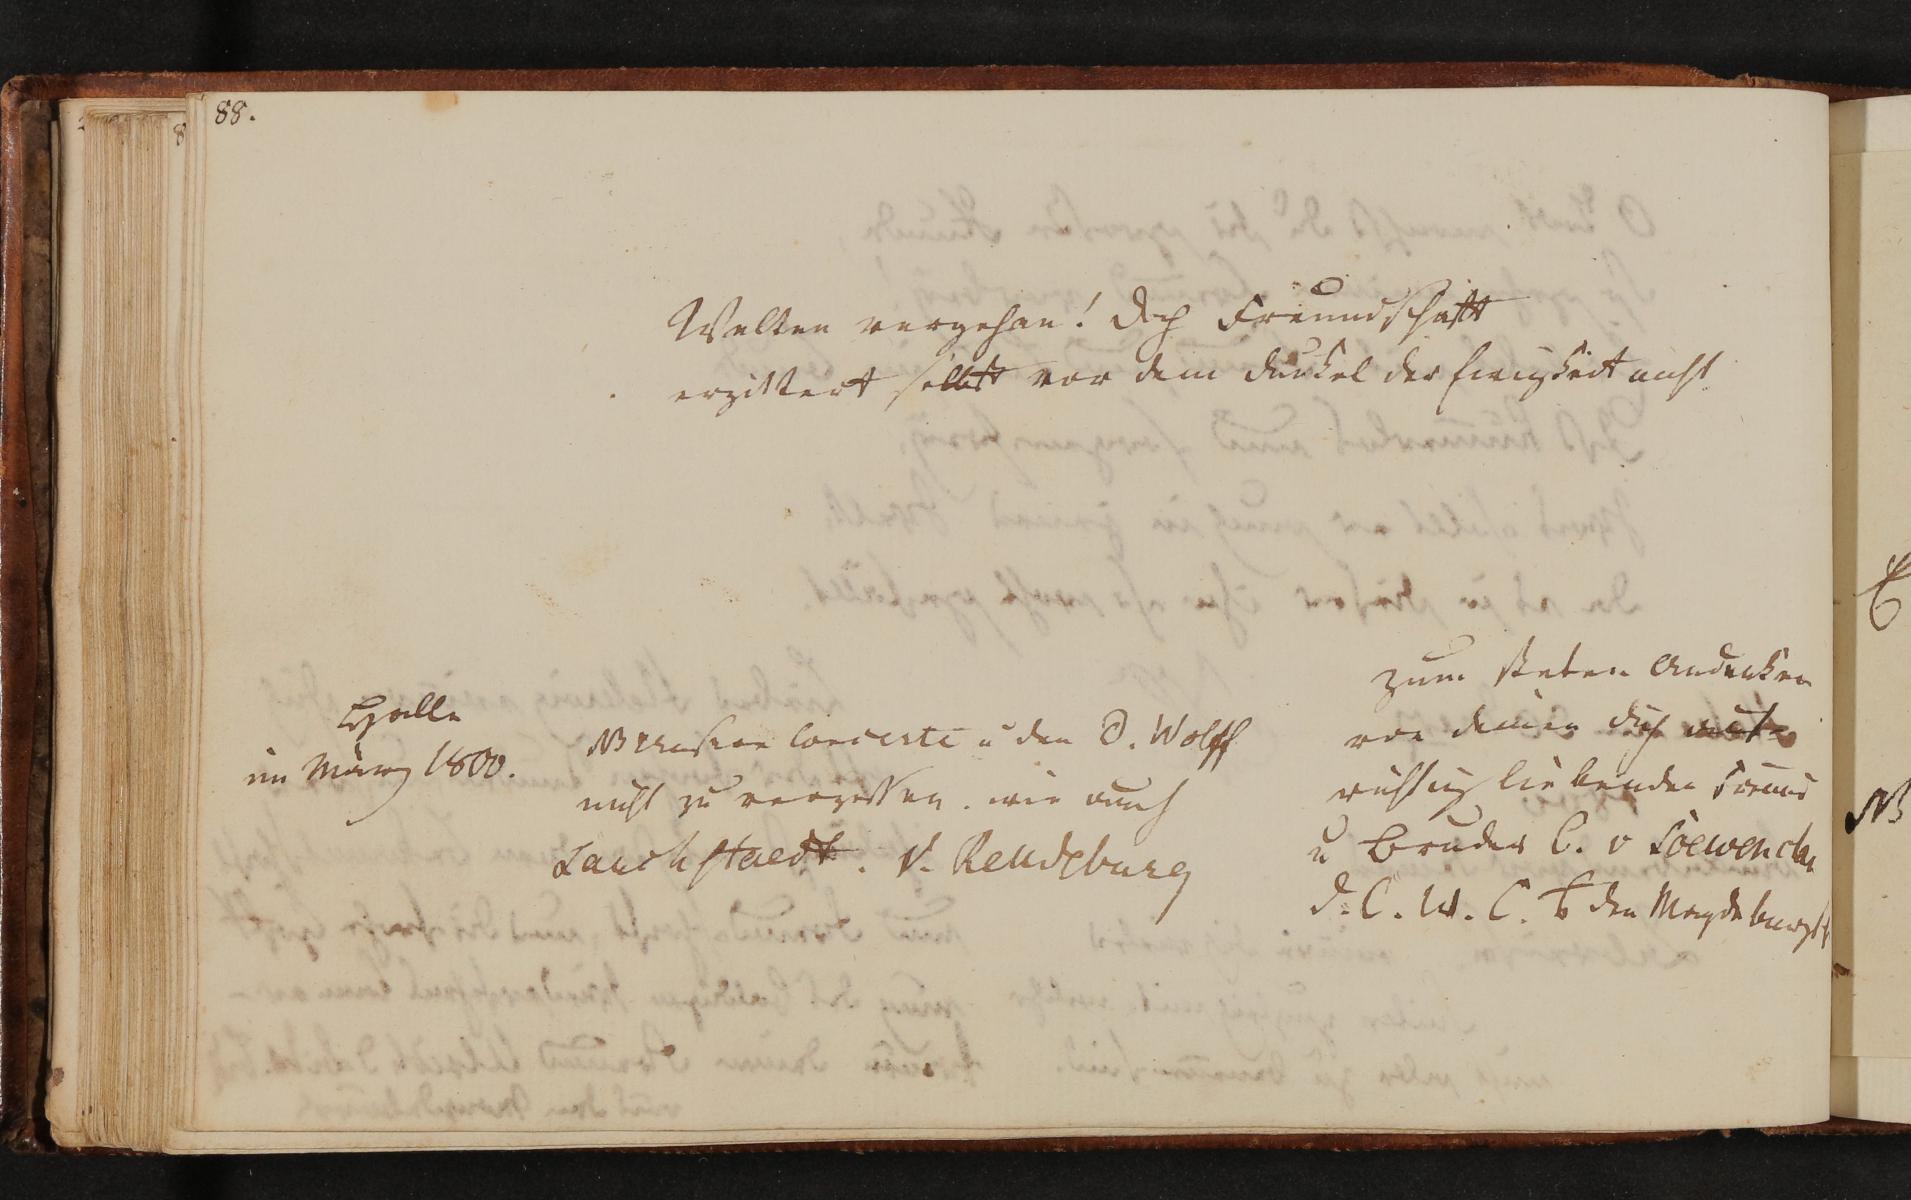 88.
Welten vergehen! doch Freundschaft
erzittert selbst vor dem Dunkel der Ewigkeit nicht
Halle
im März 1800.
NB Unsere Concerte u den D. Wolff
nicht zu vergessen. wie auch
Lauchstaedt. V. Rendsburg
zum steten Andenken
von deinen dich auf-
richtig liebenden Freund
u Bruder C. v
d. C. W. C. B den Magdeburg
NB